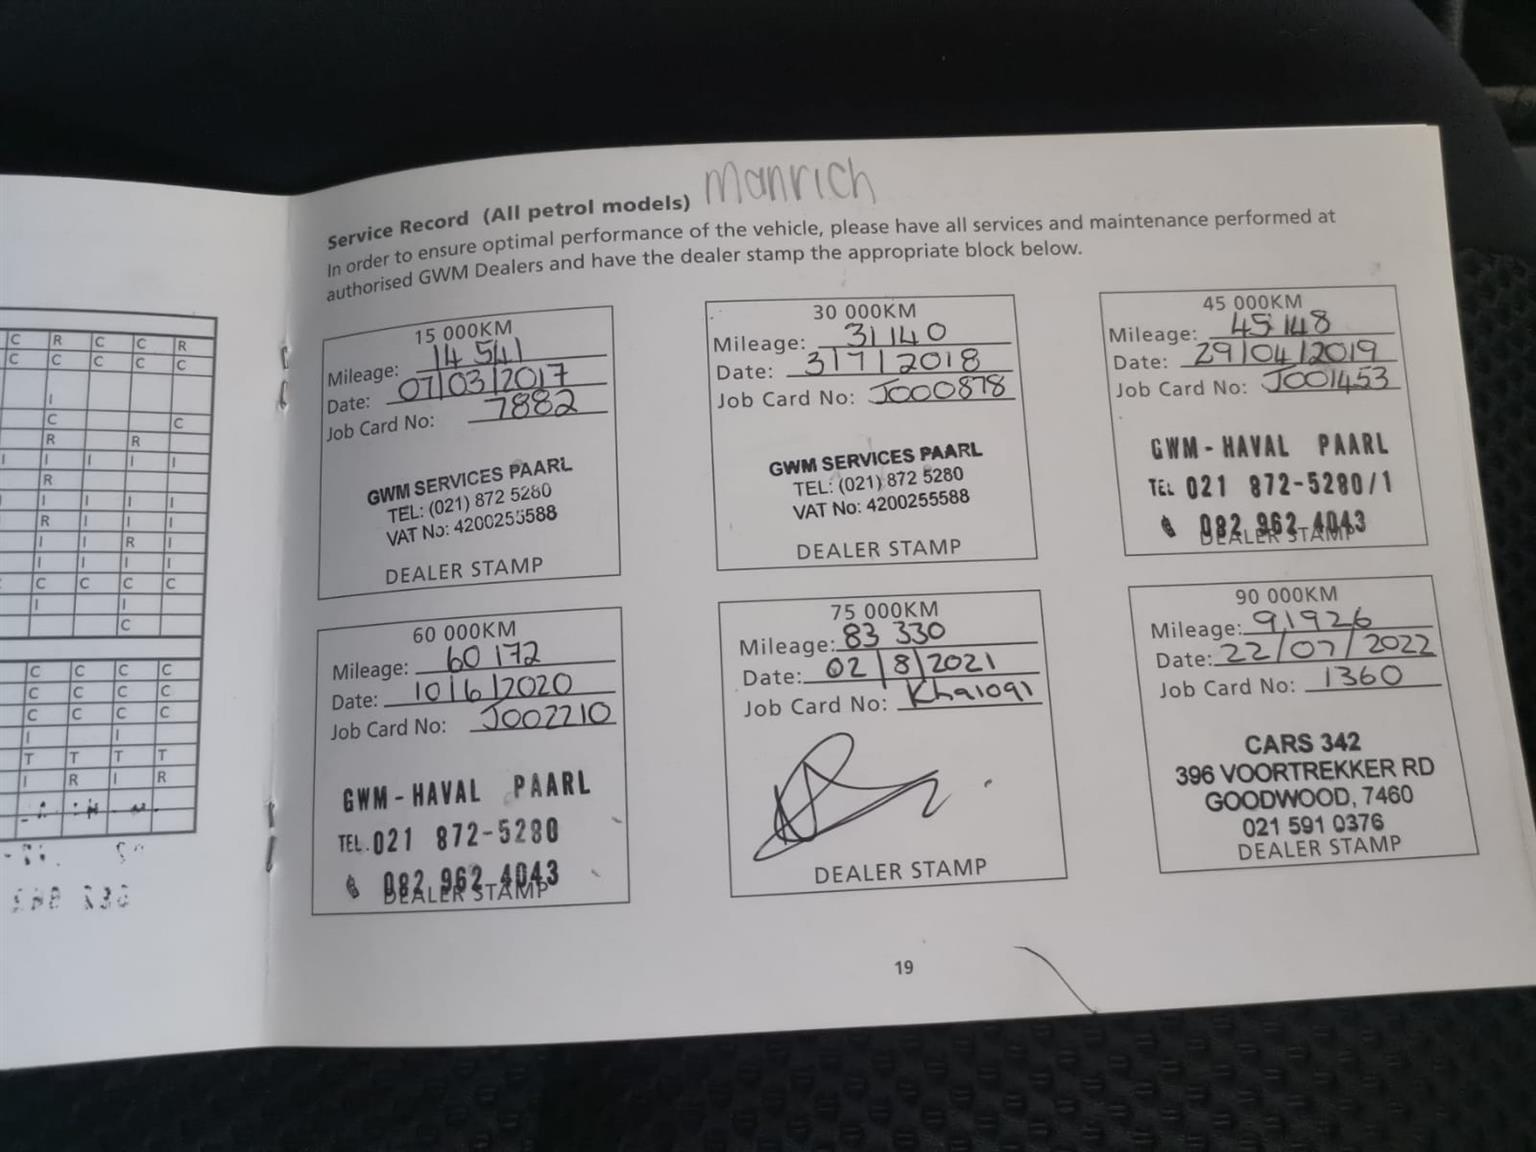 Service Record (All petrol models) Manrich
In order to ensure optimal performance of the vehicle, please have all services and maintenance performed at
authorised GWM Dealers and have the dealer stamp the appropriate block below.
15 000KM
Mileage: 14 541
Date: 07/03/2017
Job Card No: 7882
GWM SERVICES PAARL
TEL: (021) 872 5280
VAT No: 4200255588
DEALER STAMP
30 000KM
Mileage: 31140
Date: 3/7/2018
Job Card No: J000878
GWM SERVICES PAARL
TEL: (021) 872 5280
VAT No: 4200255588
DEALER STAMP
45 000KM
Mileage: 45148
Date: 29/04/2019
Job Card No: J001453
GWM - HAVAL PAARL
TEL 021 872-5280/1
082 962 4043
DEALER STAMP
60 000KM
Mileage: 60 172
Date: 10/6/2020
Job Card No: J002210
GWM - HAVAL PAARL
TEL. 021 872-5280
082 962 4043
DEALER STAMP
75 000KM
Mileage: 83 330
Date: 02/8/2021
Job Card No:
DEALER STAMP
90 000KM
Mileage: 91926
Date: 22/07/2022
Job Card No: 1360
CARS 342
396 VOORTREKKER RD
GOODWOOD, 7460
021 591 0376
DEALER STAMP
19
C R C C R
C C C C C
I
C C
R R
I I I I I
R
I I I I
R I I I
I I R I
I I I I
C C C C
I I
C
C C C C
C C C C
C C C C
I I
T T T T
I R I R